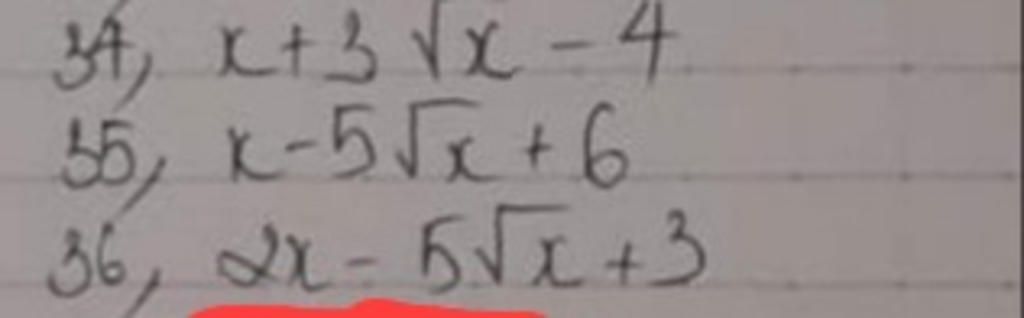 34, x+3√x - 4
35, x-5√x + 6
36, 2x - 5√x + 3